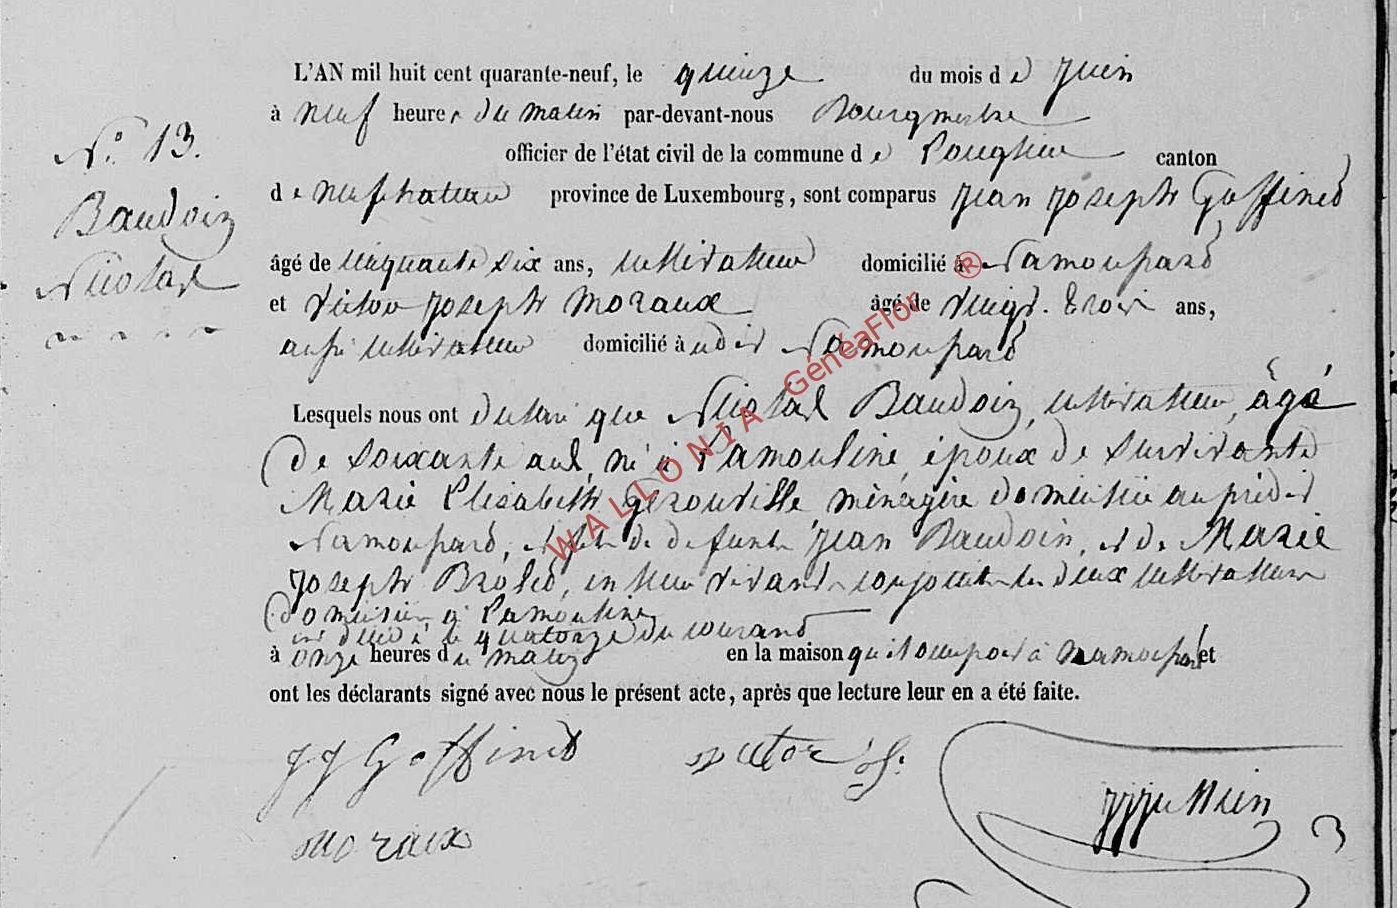 L'AN mil huit cent quarante-neuf, le quinze du mois de Juin
à neuf heures du matin par-devant-nous Bourgmestre
N.° 13. officier de l'état civil de la commune de Longlier canton
Baudoin
Nicolas
de neufchateau province de Luxembourg, sont comparus Jean Joseph Goffinet
âgé de cinquante six ans, cultivateur domicilié à Namoussard
et Victor Joseph Moraux âgé de vingt-trois ans,
aussi cultivateur domicilié à udit Namoussard
Lesquels nous ont declaré que Nicolas Baudoin, cultivateur, âgé
de soixante ans, né à Lamouline, époux de survivante
Marie Elisabeth Gérouville ménagère domiciliée au prédit
Namoussard, et fils de defunts Jean Baudoin, et de Marie
Joseph en leur vivant conjoints les deux cultivateurs
domiciliés à Lamouline
est décédé le quatorze du courant
à onze heures du matin en la maison qu'il occupoit à Namoussard et
ont les déclarants signé avec nous le présent acte, après que lecture leur en a été faite.
JJ Goffinet victor J.
moraux
WALLONIA GénéaFlor ®